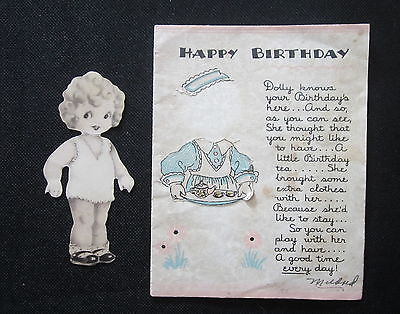 HAPPY BIRTHDAY
Dolly knows
your Birthday's
here... And so,
as you can see,
She thought that
you might like
to have.... A
little Birthday
tea..... She
brought some
extra clothes
with her....
Because she'd
like to stay...
So you can
play with her
and have....
A good time
every day!
Mildred